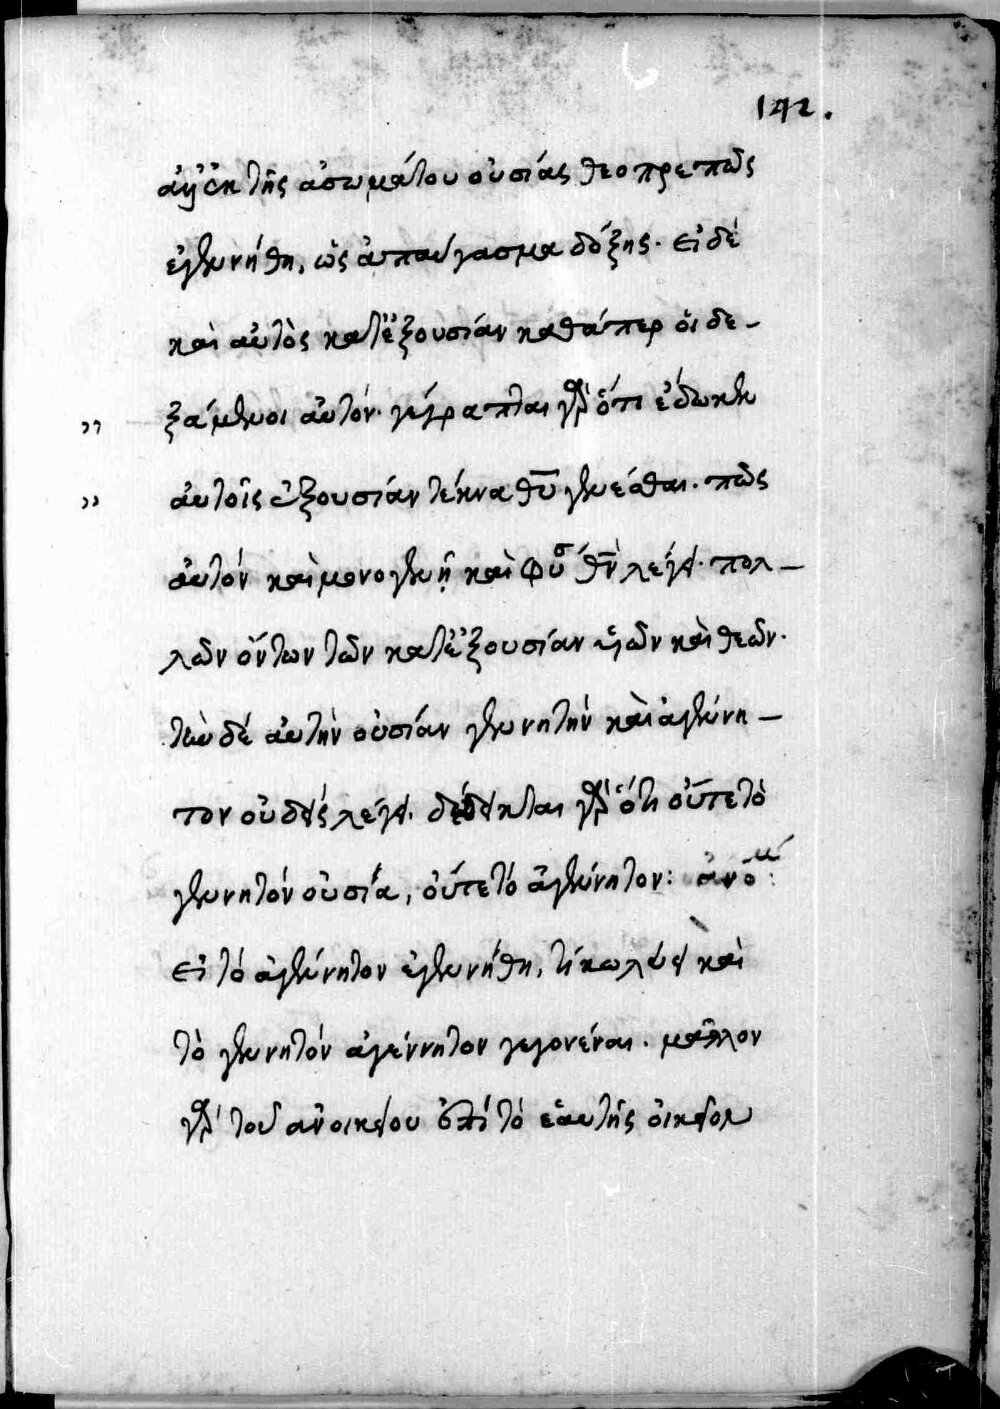 142.
ἀλλ' ἐκ τῆς ἀσωμάτου οὐσίας θεοπρεπῶς
ἐγεννήθη, ὡς ἀπαύγασμα δόξης. εἰ δὲ
καὶ αὐτὸς κατ' ἐξουσίαν καθάπερ οἱ δε-
ξάμενοι αὐτόν. γέγραπται γὰρ ὅτι ἔδωκεν
αὐτοῖς ἐξουσίαν τέκνα θυ γενέσθαι. πῶς
αὐτόν καὶ μονογενῆ καὶ φύσ θν λέγει. πολ-
λῶν ὄντων τῶν κατ' ἐξουσίαν υἱῶν καὶ θεῶν.
τὴν δὲ αὐτὴν οὐσίαν γεννητὴν καὶ ἀγέννη-
τον οὐδεὶς λέγει. δέδεικται γὰρ ὅτι οὔτε τὸ
γεννητόν οὐσία, οὔτε τὸ ἀγέννητον: ἀνόμ:
εἰ τὸ ἀγέννητον ἐγεννήθη, τί κωλύει καὶ
τὸ γεννητόν ἀγέννητον γεγονέναι. μᾶλλον
γὰρ τοῦ ἀνοικείου ἐπὶ τὸ ἑαυτῆς οἰκεῖον